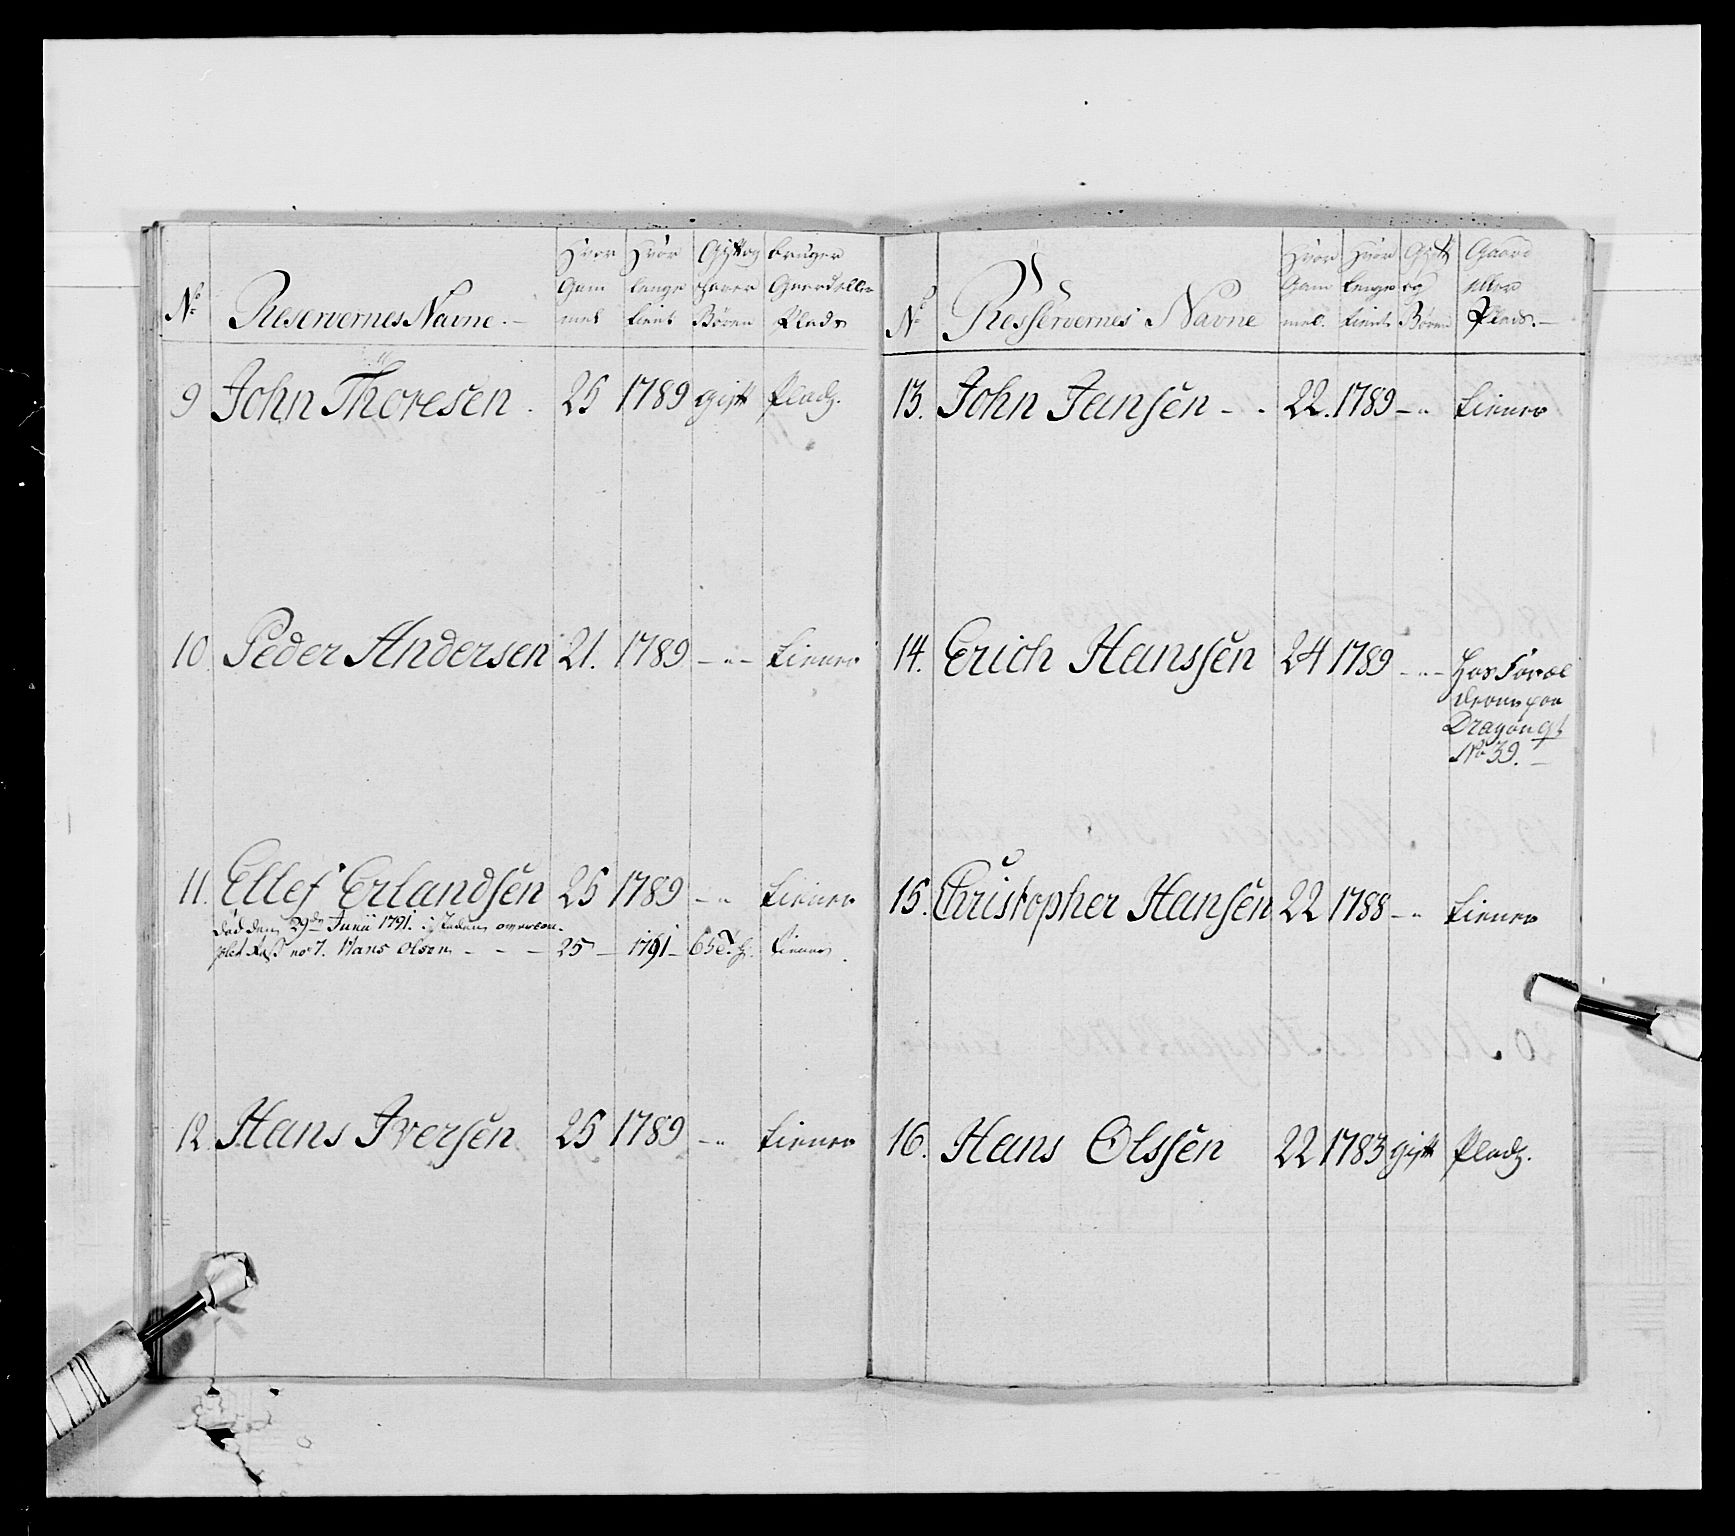 No Reservernes Navne. Hvor Gam mel Hvor lenge tient Gift og haver Børen bruger Gaard eller Plads
9 John Thoresen. 25 1789 gift Pladz.
10. Peder Andersen 21. 1789 - " - tiener
11. Ellef Erlandsen 25 1789 - " tiener
død den 29de Junii 1791. i Steden overcom-
plet Ress no 7. Hans Olsen - - - 25 - 1791 - tiener
12. Hans Iversen 25 1789 - " tiener
No Resservernes Navne Hvor Gam mel. Hvor lenge tient Gift og Børen Gaard eller Plads. -
13. John Jansen - - 22. 1789 - " tiener
14. Erich Hanssen 24 1789 - " - hos Foræl
derne paa
Dragon Qt
No 39. -
15. Christopher Hansen 22 1788 - " tiener
16. Hans Olssen 22 1783 gift Pladz.